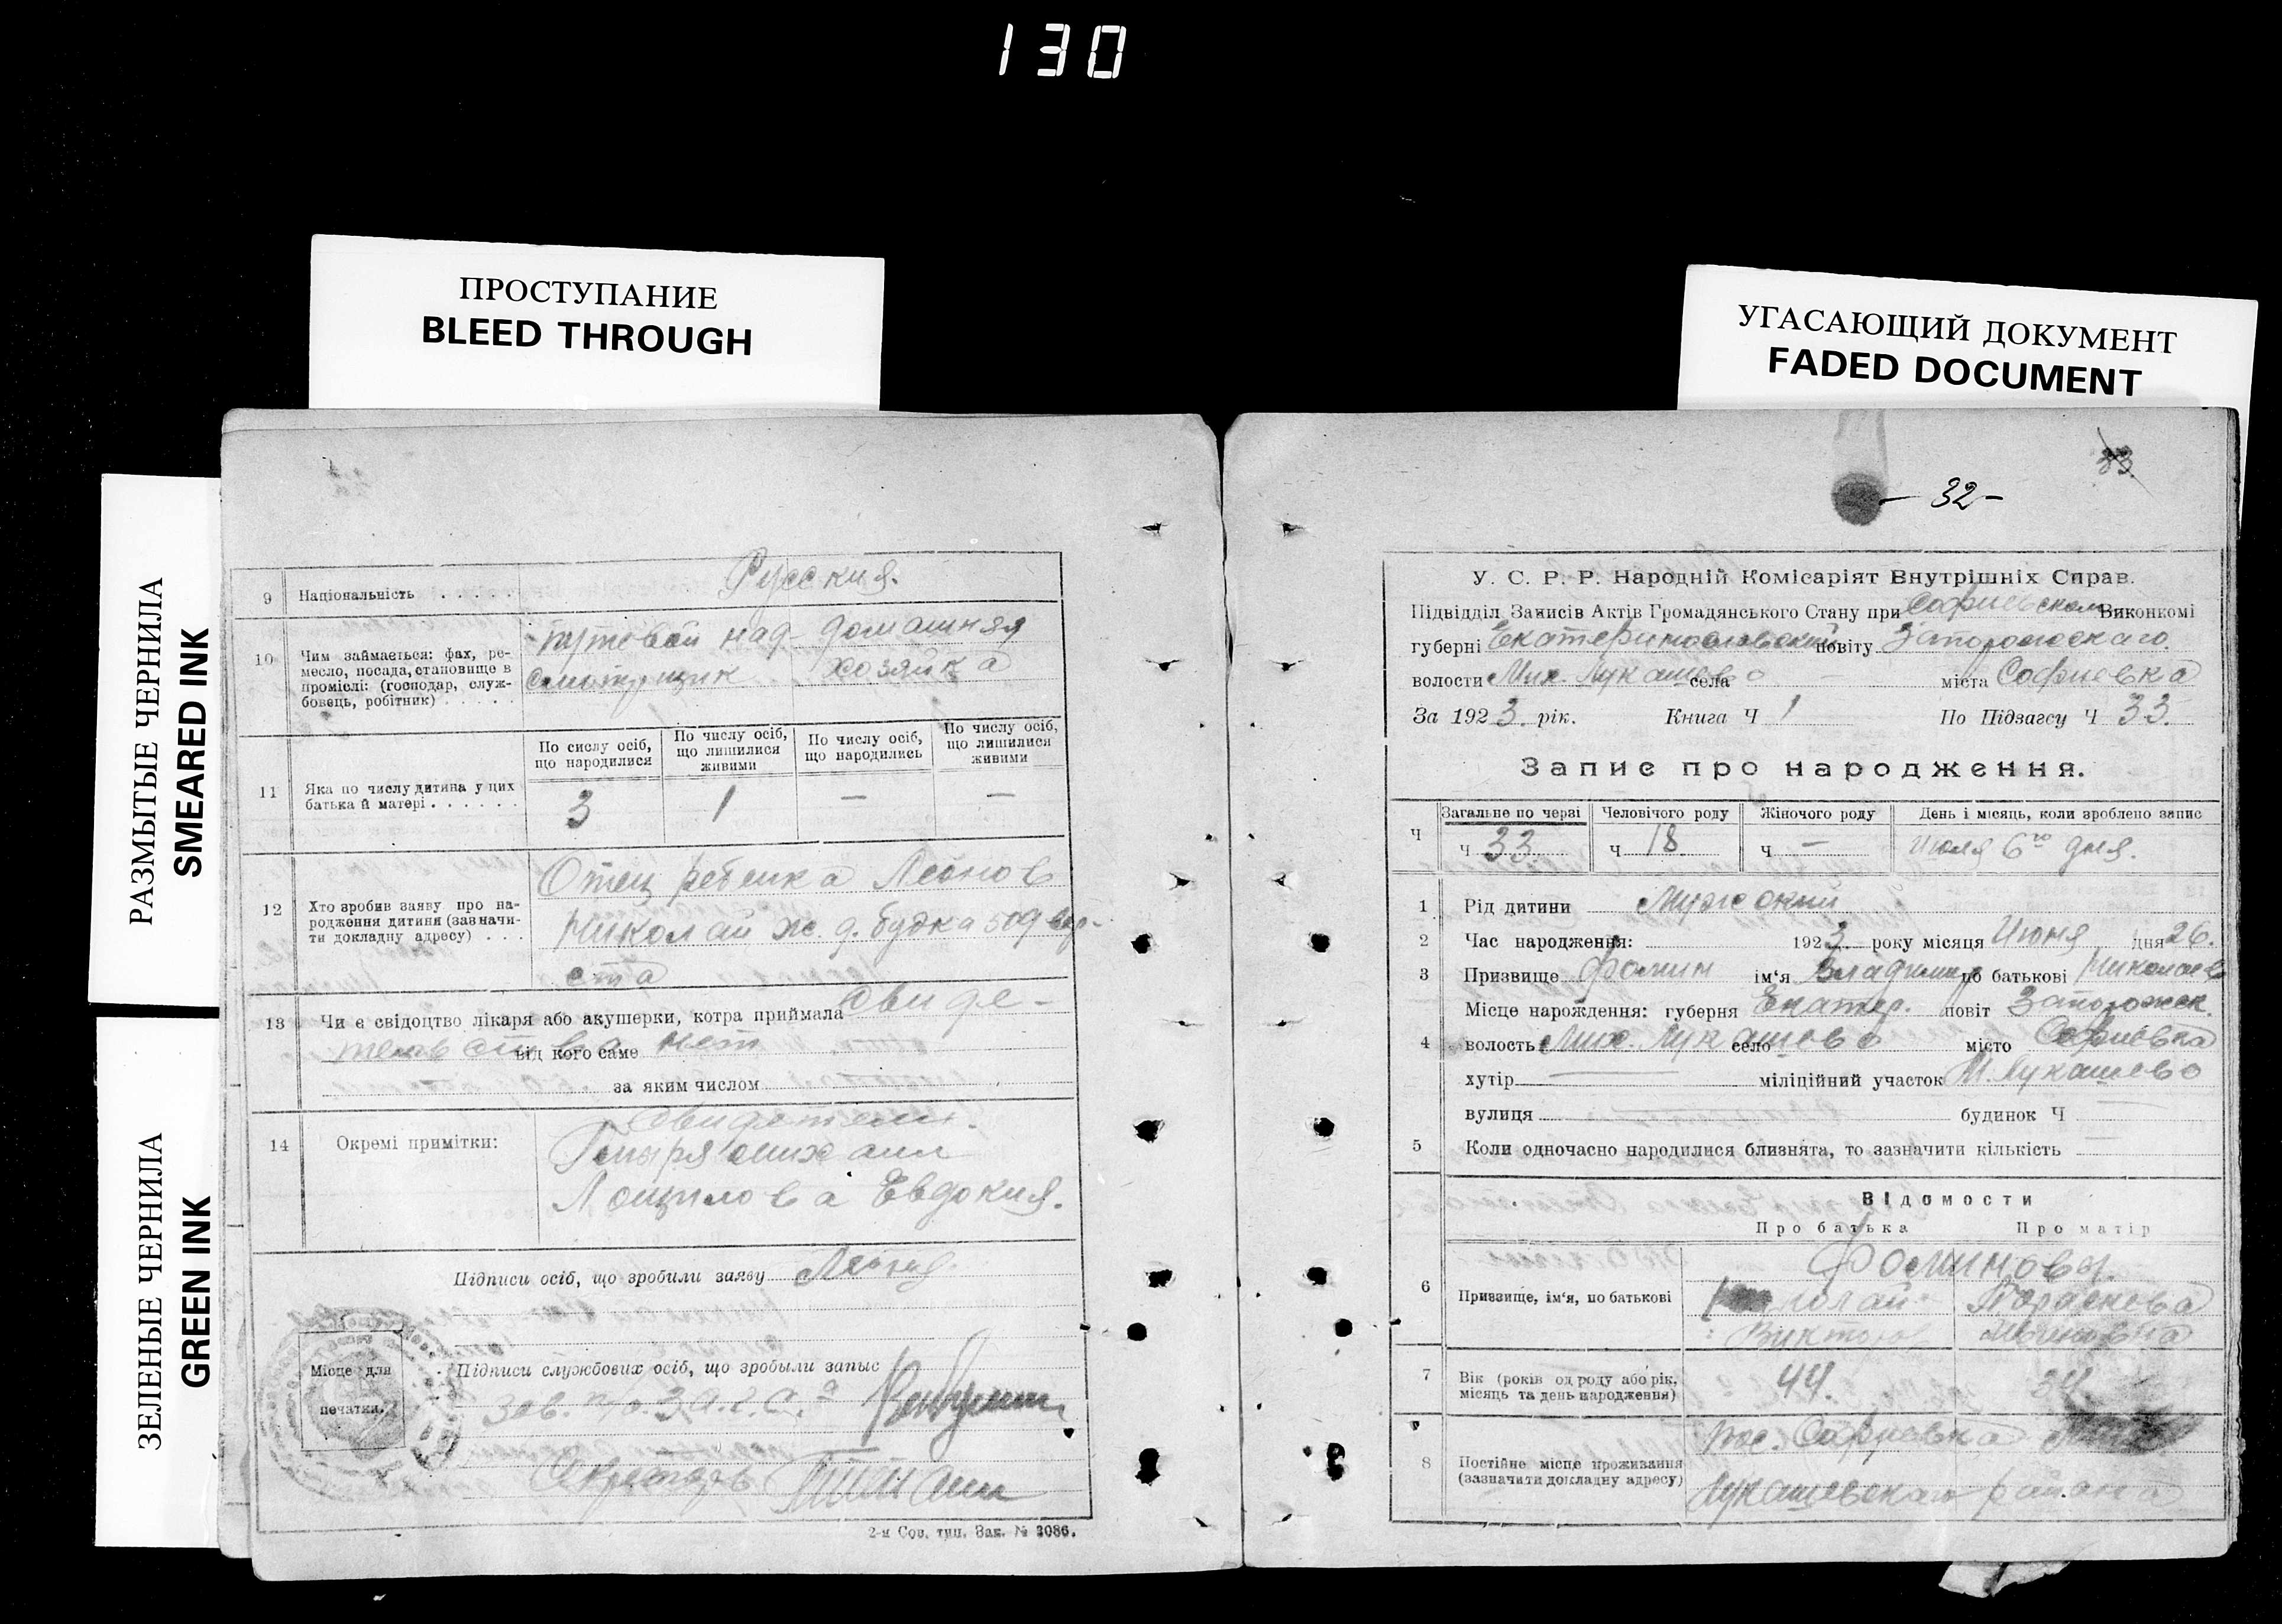 130
ПРОСТУПАНИЕ
BLEED THROUGH
УГАСАЮЩИЙ ДОКУМЕНТ
FADED DOCUMENT
РАЗМЫТЫЕ ЧЕРНИЛА
SMEARED INK
ЗЕЛЕНЫЕ ЧЕРНИЛА
GREEN INK
9 Національність . . . Русския.
10 Чим займається: фах, ремесло, посада, становище в проміслі: (господар, службовець, робітник) . . . . .
путевой над- домашняя
смотрщик хозяйка
По сислу осіб, що народилися
По числу осіб, що лишилися живими
По числу осіб, що народились
По числу осіб, що лишилися живими
11 Яка по числу дитина у цих батька й матері . . . . . .
3 1 — —
12 Хто зробив заяву про народження дитиня (зазначити докладну адресу) . . .
Отец ребенка Леонов
Николай ж. д. будка 509 вер-
ста
13 Чи є свідоцтво лікаря або акушерки, котра приймала Свиде-
тельства від кого саме нет
за яким числом
14 Окремі примітки:
Свидетели.
Михаил
Лощилова Евдокия.
Підписи осіб, що зробили заяву
Місце для
печатки.
Підписи службових осіб, що зробыли запыс
Зав. п/о. З.а.г.с.а
Секретарь
2-я Сов. тип. Зак. № 3086.
33
- 32 -
У. С. Р. Р. Народній Комісаріят Внутрішніх Справ.
Підвідділ Записів Актів Громадянського Стану при Софиевском Виконкомі
губерні Екатеринославской повіту Запорожскаго
волости Мих. Лукашево села — міста Софиевка
За 1923 рік. Книга Ч 1 По Підзагсу Ч 33.
Запис про народження.
Ч Загальне по черзі Человічого роду Жіночого роду День і місяць, коли зроблено запис
Ч 33. Ч 18 Ч — Июля 6го дня.
1 Рід дитини Мужский
2 Час народження: 1923 року місяця Июня дня 26.
3 Призвище Фомин ім‘я Владимир по батькові Николаев
Місце народження: губерня Екатер. повіт Запорожск.
4 волость Мих. Лукашево село місто Софиевка
хутір — міліційний участок М. Лукашево
вулиця — будинок Ч —
5 Коли одночасно народилися близнята, то зазначити кількість —
Відомости
Про батька Про матір
6 Призвище, ім‘я, по батькові
Фоминовы.
Николай Параскова
Викторов Ивановна
7 Вік (років од роду або рік, місяць та день народження) 44. 34.
8 Постійне місце проживання (зазначити докладну адресу)
пос. Софиевка
Лукашевскаго района